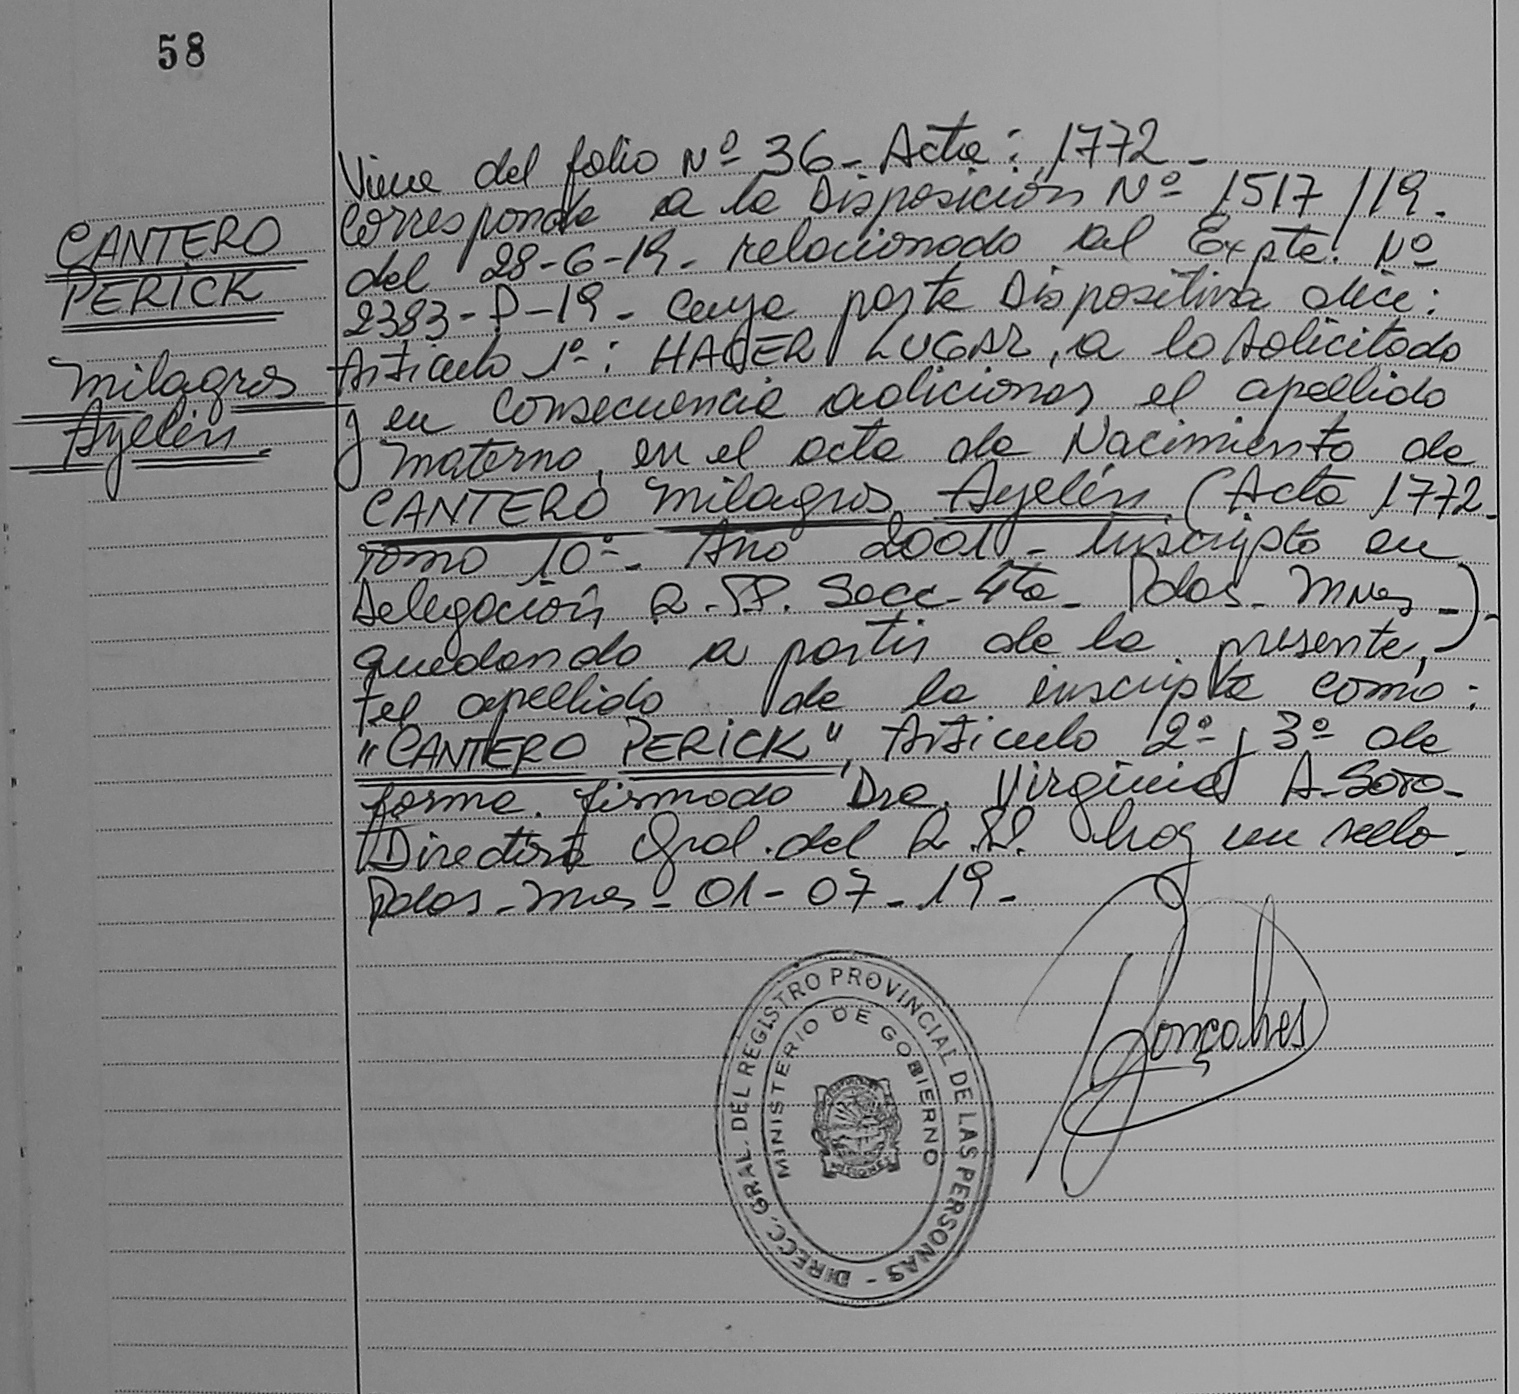 58
CANTERO
PERICK
Milagros
Ayelén.
Viene del folio Nº 36 - Acta: 1772 -
Corresponde a la Disposición Nº 1517/19.
del 28-6-19 - relacionado al Expte. Nº
2383-P-19 - cuya parte Dispositiva dice:
Artículo 1º: HACER LUGAR, a lo solicitado
y en consecuencia adicionar el apellido
materno, en el acta de Nacimiento de
CANTERO Milagros Ayelén (Acta 1772
Tomo 10º - Año 2001 - Inscripta en
Delegación R.PP. Secc. 4ta - Pdas - Mnes -).
quedando a partir de la presente,
el apellido de la inscripta como:
"CANTERO PERICK", Artículo 2º y 3º de
forma. firmado Dra. Virginia A. Soro -
Directora Gral. del R.PP. hay un sello.
Pdas - Mnes - 01-07-19 -
Gonçalves
DIRECC. GRAL. DEL REGISTRO PROVINCIAL DE LAS PERSONAS -
MINISTERIO DE GOBIERNO
MISIONES